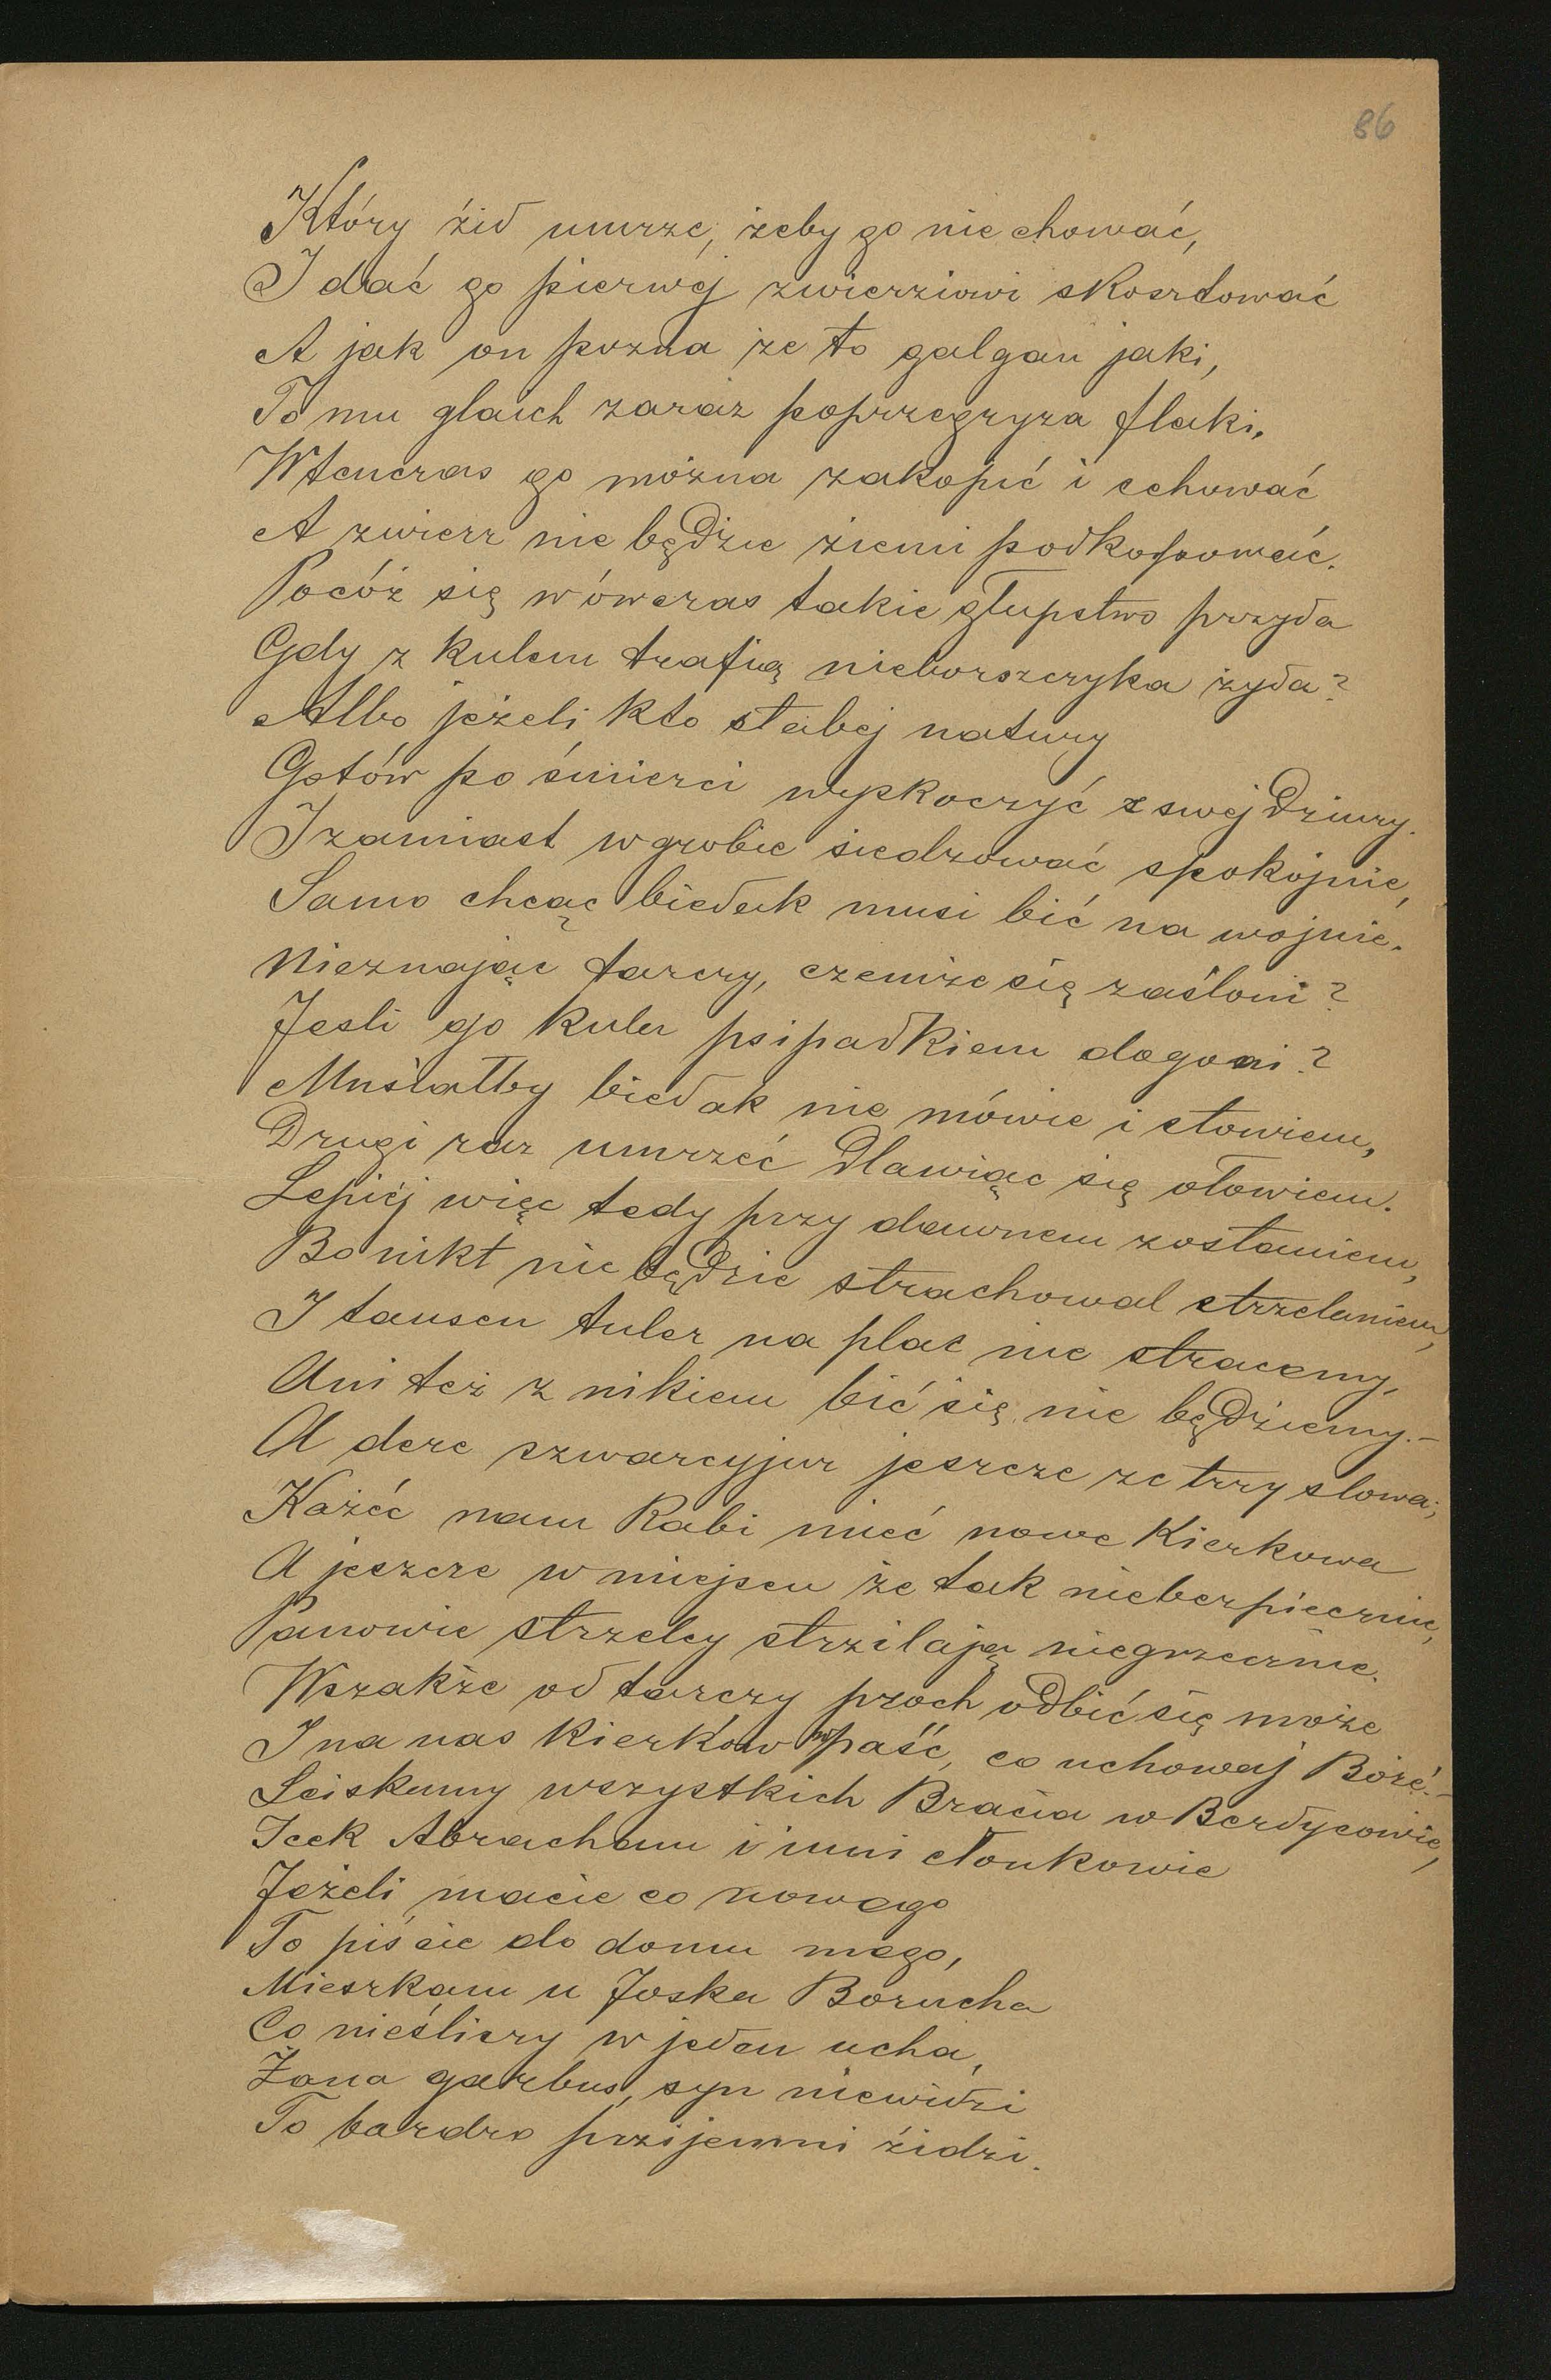 86
Który żid umrze, żeby go nie chować,
I dać go pierwéj zwierziowi skosztować
A jak on pozna że to galgan jaki,
To mu glaich zaraz poprzegryza flaki.
Wtenczas go można zakopić i schować
A zwierz nie będzie ziemi podkopować.
Pocóż się wówczas takie głupstwo przyda
Gdy z kulem trafią nieborszczyka żyda?
Albo jeżeli kto słabej natury
Gotów po śmierci wyskoczyć z swej dziury.
I zamiast w grobie siedzować spokojnie,
Samo chcąc biedak musi bić na wojnie.
Nieznając tarczy, czemże się zasłoni?
Jesli go kula psipadkiem dogoni?
Musiałby biedak nie mówie i słowiem,
Drugi raz umrzeć dlawiąc się ołowiem.
Lepiéj więc tedy przy dawnem zostaniem,
Bo nikt nie będzie strachowal strzelaniem,
I tausen tuler na plac nie stracemy,
Ani też z nikiem bić się nie będziemy.-
A deze szwarcyjur jeszcze ze trzy slowa;
Każéć nam Rabi mieć nowe Kierkowa
A jeszcze w miejscu że tak niebezpiecznie,
Panowie strzelcy strzilają niegrzecznie.
Wszakże od tarczy proch odbić się może
I na nas Kierków wpaść, co uchowaj Bożé.-
Sciskamy wszystkich Bracia w Berdycowie,
Icek Abracham i inni członkowie
Jeżeli macie co nowego
To piście do domu mego,
Mieszkam u Joska Borucha
Co nieśliszy w jeden ucha,
Żona garbus, syn niewidzi
To bardzo przijemni żidzi.